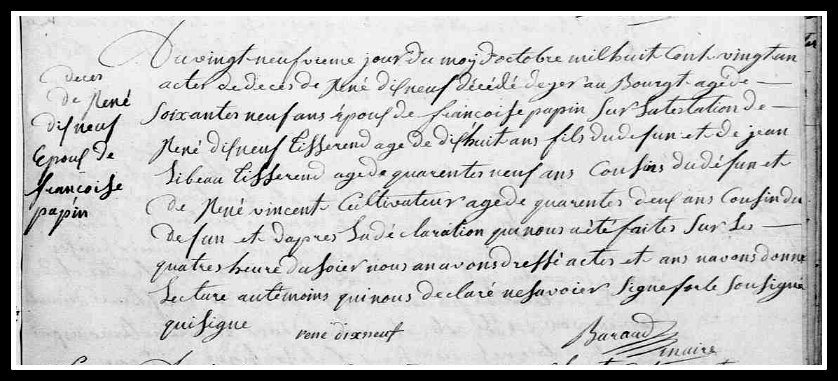 deces
de René
disneuf
Epouse de
francoise
papin
Du vingt neufvieme jour du moy d'octobre mil huit Cent vingt un
acter de deces de René disneuf décédé deyer au Bourgt agé de
Soixantes neuf ans Epouse de francoise papin Sur Latestation de
René disneuf tisserend age de dishuit ans fils du defun et de jean
Libeau tisserend agede quarentes neuf ans Cousins du défun et
de René vincent Cultivateur agede quarentes deus ans Cousin du
defun et dapres La déclaration qui nous a été faites Sur Les
quatres heure du soier nous an avons dressé actes et ans navons donne
Lecture autemoins qui nous declaré ne savoier Signe for le Sousigné
qui signe
rené dixneuf
Baraud
maire